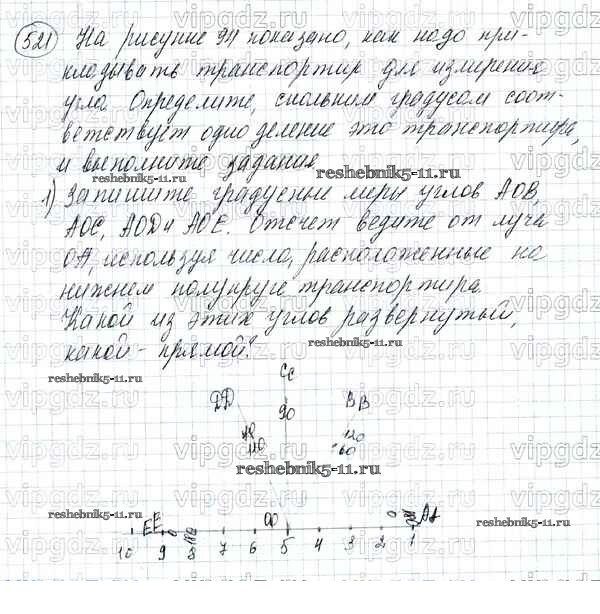 521 На рисунке 94 показано, как надо при-
кладывать транспортир для измерения
угла. Определите, скольким градусам соот-
ветствует одно деление это транспортира,
и выполните задания
reshebnik5-11.ru reshebnik5-11.ru
1) Запишите градусные меры углов AOB,
AOC, AOD и AOE. Отсчет ведите от луча
OA, используя числа, расположенные на
нижнем полукруге транспортира.
Какой из этих углов развернутый,
какой - прямой?
reshebnik5-11.ru
reshebnik5-11.ru
CC
DD BB
90
120
110 60
reshebnik5-11.ru
EE O AA
reshebnik5-11.ru reshebnik5-11.ru
10 9 8 7 6 5 4 3 2 1